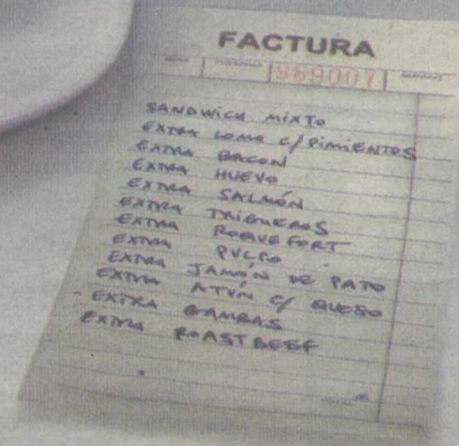 FACTURA
969007
SANDWICH MIXTO
EXTRA LOMO C/ PIMIENTOS
EXTRA BACON
EXTRA HUEVO
EXTRA SALMÓN
EXTRA TRIGUEROS
EXTRA ROQUEFORT
EXTRA PULPO
EXTRA JAMÓN DE PATO
EXTRA ATÚN C/ QUESO
EXTRA GAMBAS
EXTRA ROAST BEEF